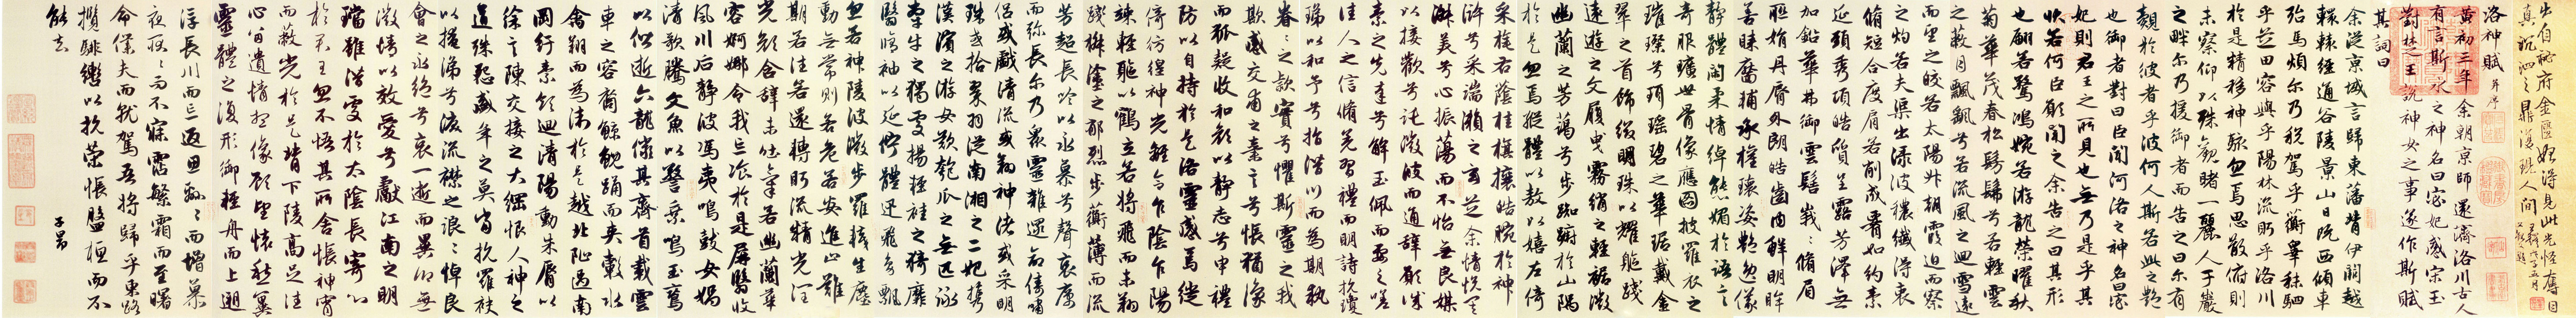 洛神賦 并序
黃初三年余朝京師還濟洛川古人
有言斯水之神名曰宓妃感宋玉
對楚王說神女之事遂作斯賦
其詞曰
余從京域言歸東藩背伊闕越
轘轅經通谷陵景山日既西傾車
殆馬煩尔乃稅駕乎蘅皋秣駟
乎芝田容與乎陽林流眄乎洛川
於是精移神駭忽焉思散俯則
未察仰以殊觀睹一麗人于巖
之畔尔乃援御者而告之曰尔有
覿於彼者乎彼何人斯若此之艷
也御者對曰臣聞河洛之神名曰宓
妃則君王之所見也無乃是乎其
狀若何臣願聞之余告之曰其形
也翩若驚鴻婉若游龍榮曜秋
菊華茂春松髣髴兮若輕雲
之蔽月飄飖兮若流風之迴雪遠
而望之皎若太陽升朝霞迫而察
之灼若夫渠出淥波穠纖得衷
脩短合度肩若削成署如約素
延頸秀項皓質呈露芳澤無
加鉛華弗御雲髻峩峩脩眉
聯娟丹脣外朗皓齒内鮮明眸
善睞靨輔承權瓌姿艷逸儀
靜體閑柔情綽態媚於語言
奇服曠世骨像應圖披羅衣之
璀璨兮珥瑤碧之華琚戴金
翠之首飾綴明珠以耀軀踐
遠遊之文履曳霧綃之輕裾微
幽蘭之芳藹兮步踟躕於山隅
於是忽焉縱體以敖以嬉左倚
采旄右蔭桂旗攘皓腕於神
滸兮采湍瀨之玄芝余情悅其
淑美兮心振蕩而不怡無良媒
以接歡兮託微波而通辭願誠
素之先達兮解玉佩而要之嗟
佳人之信脩羌習禮而明詩抗瓊
珶以和予兮指潛川而為期執
眷眷之款實兮懼斯靈之我
欺感交甫之棄言兮悵猶豫
而狐疑收和顏以靜志兮申禮
防以自持於是洛靈感焉徙
倚彷徨神光離合乍陰乍陽
竦輕軀以鶴立若將飛而未翔
踐椒塗之郁烈步蘅薄而流
芳超長吟以永慕兮聲哀厲
而弥長尔乃眾靈雜遝命儔嘯
侶或戲清流或翔神渚或采明
珠或拾翠羽從南湘之二妃携
漢濱之游女歎匏瓜之無匹詠
牽牛之獨處揚輕袿之猗靡
翳脩袖以延佇體迅飛鳧飄
忽若神陵波微步羅襪生塵
動無常則若危若安進止難
期若往若還轉眄流精光潤
玉顏含辭未吐氣若幽蘭華
容婀娜令我忘飡於是屏翳收
風川后靜波馮夷鳴鼓女媧
清歌騰文魚以警乘鳴玉鸞
以偕逝六龍儼其齊首載雲
車之容裔鯨鯢踊而夾轂水
禽翔而為衛於是越北沚過南
岡紆素領迴清陽動朱脣以
徐言陳交接之大綱恨人神之
道殊怨盛年之莫當抗羅袂
以掩涕兮淚流襟之浪浪悼良
會之永絕兮哀一逝而異鄉無
微情以效愛兮獻江南之明
璫雖潛處於太陰長寄心
於君王忽不悟其所舍悵神宵
而蔽光於是背下陵高足往
心留遺情想像顧望懷愁冀
靈體之復形御輕舟而上遡
浮長川而忘返思緜緜而增慕
夜耿耿而不寐霑繁霜而至曙
命僕夫而就駕吾將歸乎東路
攬騑轡以抗策悵盤桓而不
能去
子昂